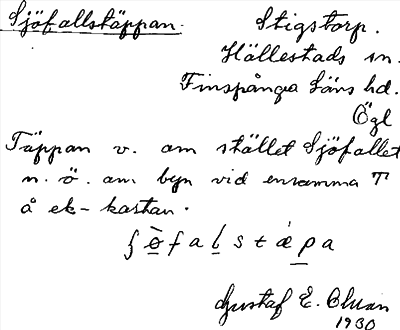 Sjöfallstäppan.
Stigstorp.
Hällestads sn.
Finspånga läns hd.
Ögl
Täppan v. om stället Sjöfallet
n. ö. om byn vid ensamma T
å ek-kartan.
ʃò̱faḻstǽp̱a
Gustaf E. Olson
1930